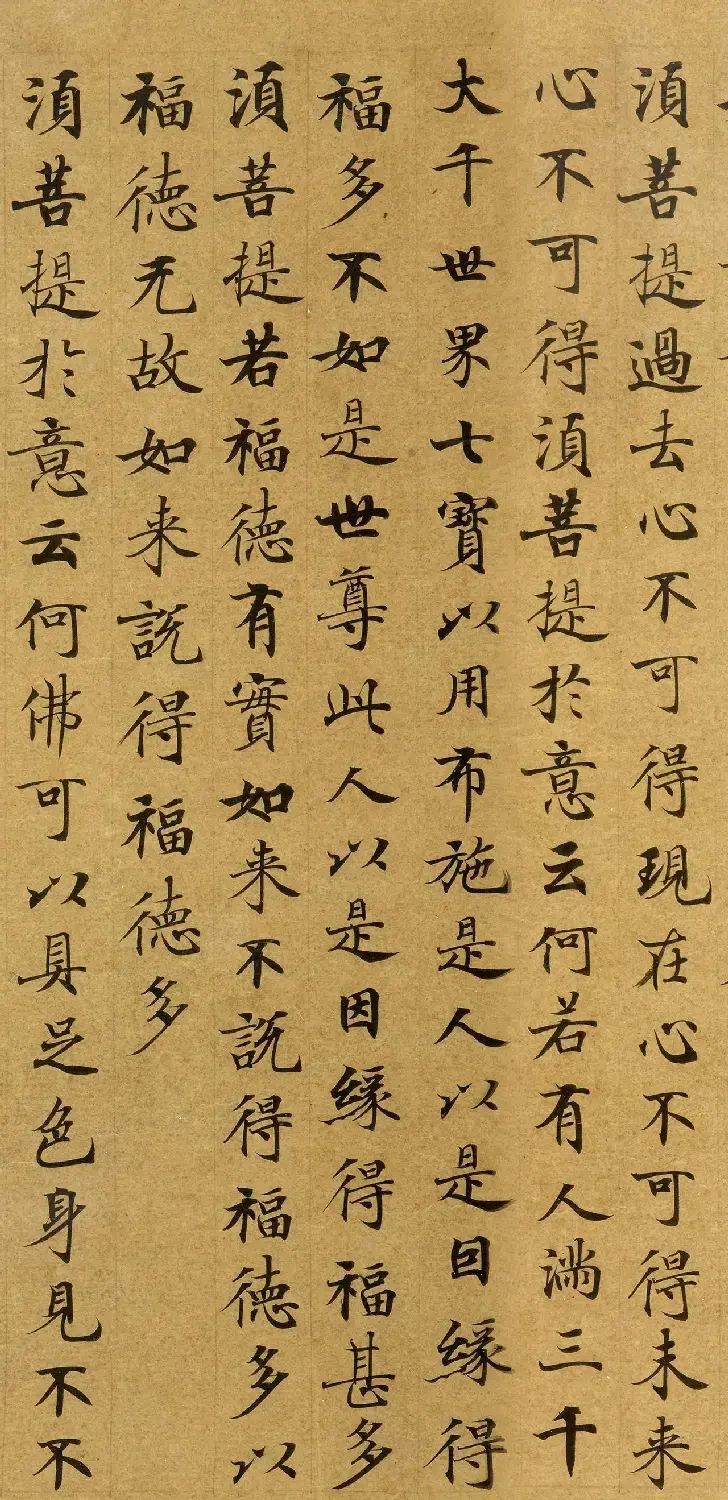 須菩提過去心不可得現在心不可得未来
心不可得須菩提於意云何若有人満三千
大千世界七寳以用布施是人以是因緣得
福多不如是世尊此人以是因緣得福甚多
須菩提若福德有實如来不說得福德多以
福德无故如来說得福德多
須菩提於意云何佛可以具足色身見不不